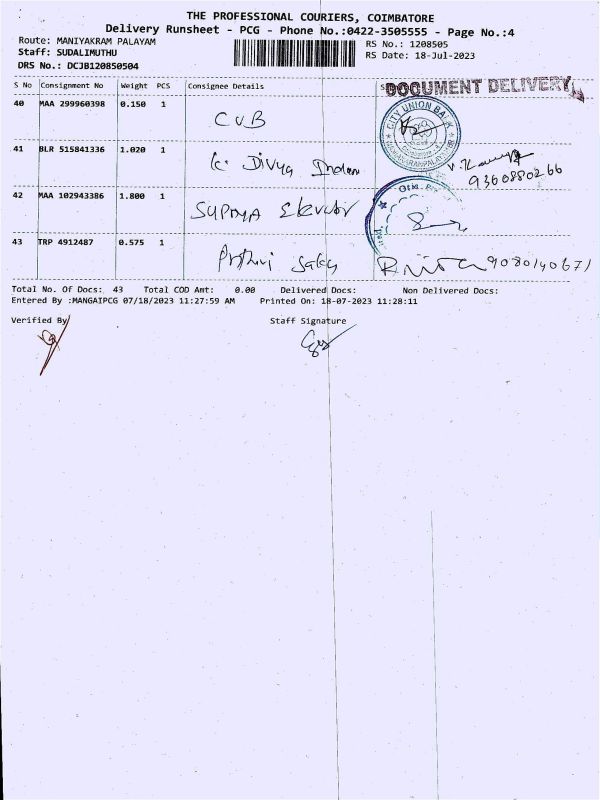 THE PROFESSIONAL COURIERS, COIMBATORE
Delivery Runsheet - PCG - Phone No.:0422-3505555 - Page No.:4
Route: MANIYAKRAM PALAYAM
Staff: SUDALIMUTHU
DRS No.: DCJB120850504
RS No.: 1208505
RS Date: 18-Jul-2023
S No Consignment No Weight PCS Consignee Details
DOCUMENT DELIVERY
40 MAA 299960398 0.150 1 CUB
CITY UNION BANK
41 BLR 515841336 1.020 1 K. Divya
9360880266
42 MAA 102943386 1.800 1 Supriya Elevator
43 TRP 4912487 0.575 1 Prithvi Sales
9080140671
Total No. Of Docs: 43 Total COD Amt: 0.00 Delivered Docs: Non Delivered Docs:
Entered By :MANGAIPCG 07/18/2023 11:27:59 AM Printed On: 18-07-2023 11:28:11
Verified By
Staff Signature